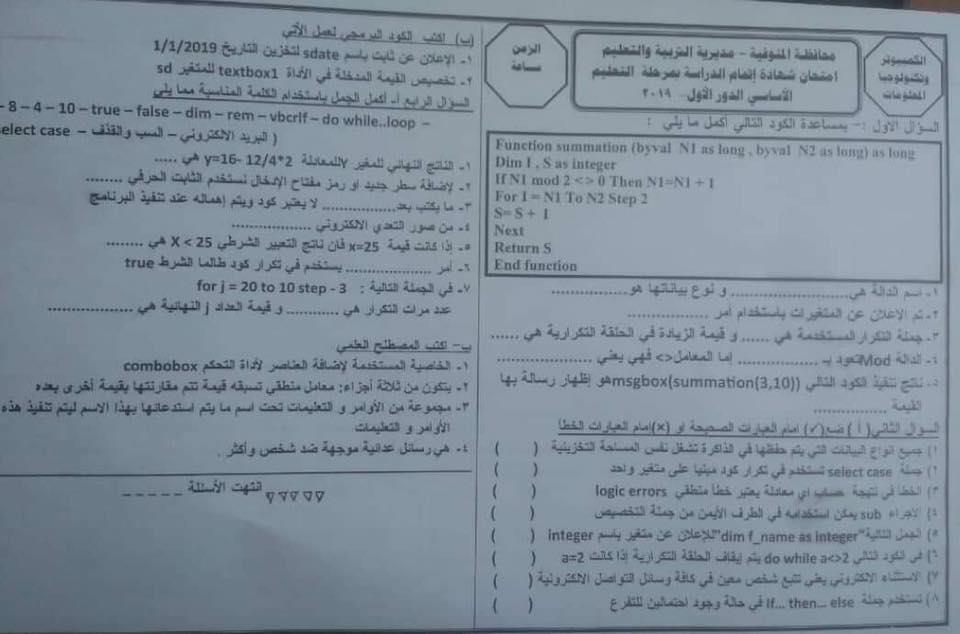 الكمبيوتر
وتكنولوجيا
المعلومات
محافظة المنوفية - مديرية التربية والتعليم
امتحان شهادة إتمام الدراسة بمرحلة التعليم
الأساسي الدور الأول - ٢٠١٩
الزمن
ساعة
السؤال الأول :- بمساعدة الكود التالي أكمل ما يلي :
Function summation (byval N1 as long , byval N2 as long) as long
Dim I , S as integer
If N1 mod 2 <> 0 Then N1=N1 + 1
For I = N1 To N2 Step 2
S= S + 1
Next
Return S
End function
١- اسم الدالة هي........................ و نوع بياناتها هو................
٢- تم الاعلان عن المتغيرات باستخدام أمر ..................
٣- جملة التكرار المستخدمة هي ....... و قيمة الزيادة في الحلقة التكرارية هي ......
٤- الدالة Mod تعود بـ ................ إما المعامل <> فهي يعني ....................
٥- ناتج تنفيذ الكود التالي msgbox(summation(3,10)) هو إظهار رسالة بها
القيمة ................
السؤال الثاني (أ) ضع (✓) امام العبارات الصحيحة او (x) امام العبارات الخطأ
١) جميع انواع البيانات التي يتم حفظها في الذاكرة تشغل نفس المساحة التخزينية ( )
٢) جملة select case تستخدم في تكرار كود مبنيا على متغير واحد ( )
٣) الخطأ في نتيجة حساب اي معادلة يعتبر خطأ منطقي logic errors ( )
٤) الاجراء sub يمكن استخدامه في الطرف الأيمن من جملة التخصيص ( )
٥) الجمل التالية "dim f_name as integer" للإعلان عن متغير باسم integer ( )
٦) في الكود التالي do while a<>2 يتم إيقاف الحلقة التكرارية إذا كانت a=2 ( )
٧) الاستثناء الالكتروني يعني تتبع شخص معين في كافة وسائل التواصل الالكترونية ( )
٨) تستخدم جملة If... then... else في حالة وجود احتمالين للتفرع ( )
(ب) اكتب الكود البرمجي لعمل الآتي
١- الإعلان عن ثابت باسم sdate لتخزين التاريخ 1/1/2019
٢- تخصيص القيمة المدخلة في الأداة textbox1 للمتغير sd
السؤال الرابع أ- أكمل الجمل باستخدام الكلمة المناسبة مما يلي
- 8 – 4 – 10 – true – false – dim – rem – vbcrlf – do while..loop –
( البريد الالكتروني – السب والقذف – elect case
١- الناتج النهائي للمغير y للمعادلة y=16- 12/4*2 هي .....
٢- لإضافة سطر جديد او رمز مفتاح الإدخال نستخدم الثابت الحرفي ........
٣- ما يكتب بعد................ لا يعتبر كود ويتم إهماله عند تنفيذ البرنامج
٤- من صور التعدي الالكتروني ................
٥- إذا كانت قيمة x=25 فان ناتج التعبير الشرطي X < 25 هي ........
٦- أمر .................. يستخدم في تكرار كود طالما الشرط true
٧- في الجملة التالية : for j = 20 to 10 step - 3
عدد مرات التكرار هي ............ و قيمة العداد j النهائية هي ..................
ب- اكتب المصطلح العلمي
١- الخاصية المستخدمة لإضافة العناصر لأداة التحكم combobox
٢- يتكون من ثلاثة أجزاء: معامل منطقي تسبقه قيمة تتم مقارنتها بقيمة أخرى بعده
٣- مجموعة من الأوامر و التعليمات تحت اسم ما يتم استدعائها بهذا الاسم ليتم تنفيذ هذه
الأوامر و التعليمات
٤- هي رسائل عدائية موجهة ضد شخص وأكثر .
انتهت الأسئلة _ _ _ _ _